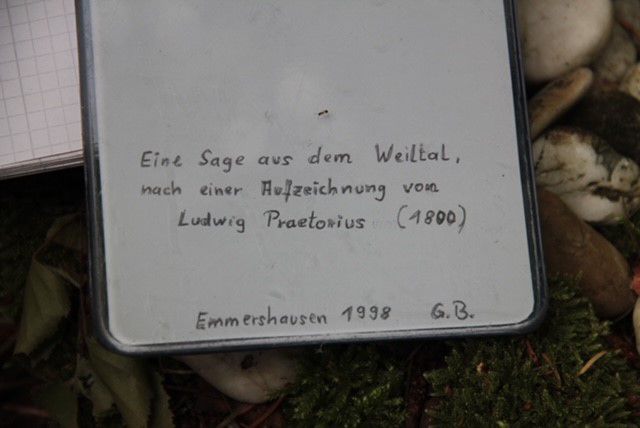 Eine Sage aus dem Weiltal,
nach einer Aufzeichnung von
Ludwig Praetorius (1800)
Emmershausen 1998 G.B.